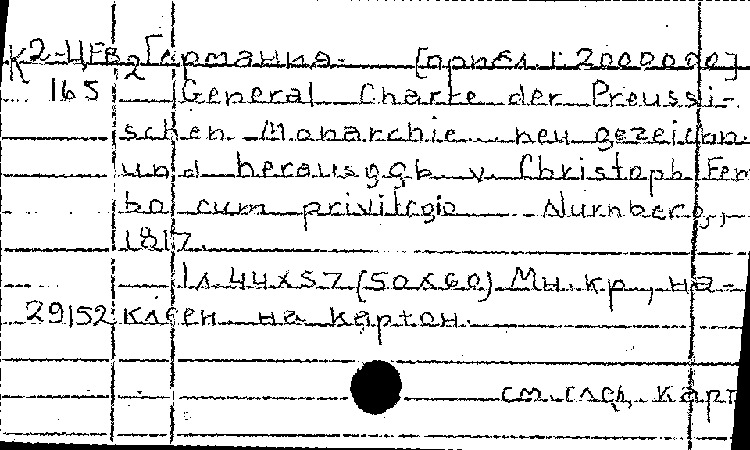 К2-ЦЕв2 Германия. [прибл. 1:2000000]
165 General Charte der Preussi-
schen Monarchie neu gezeichn.
und herausgegb. v. Christoph Fem
bo cum privilegio Nürnberg,
1817.
1 л. 44x57 (50x60) Мн. кр., на-
29152 клеен на картон.
см. след. карт